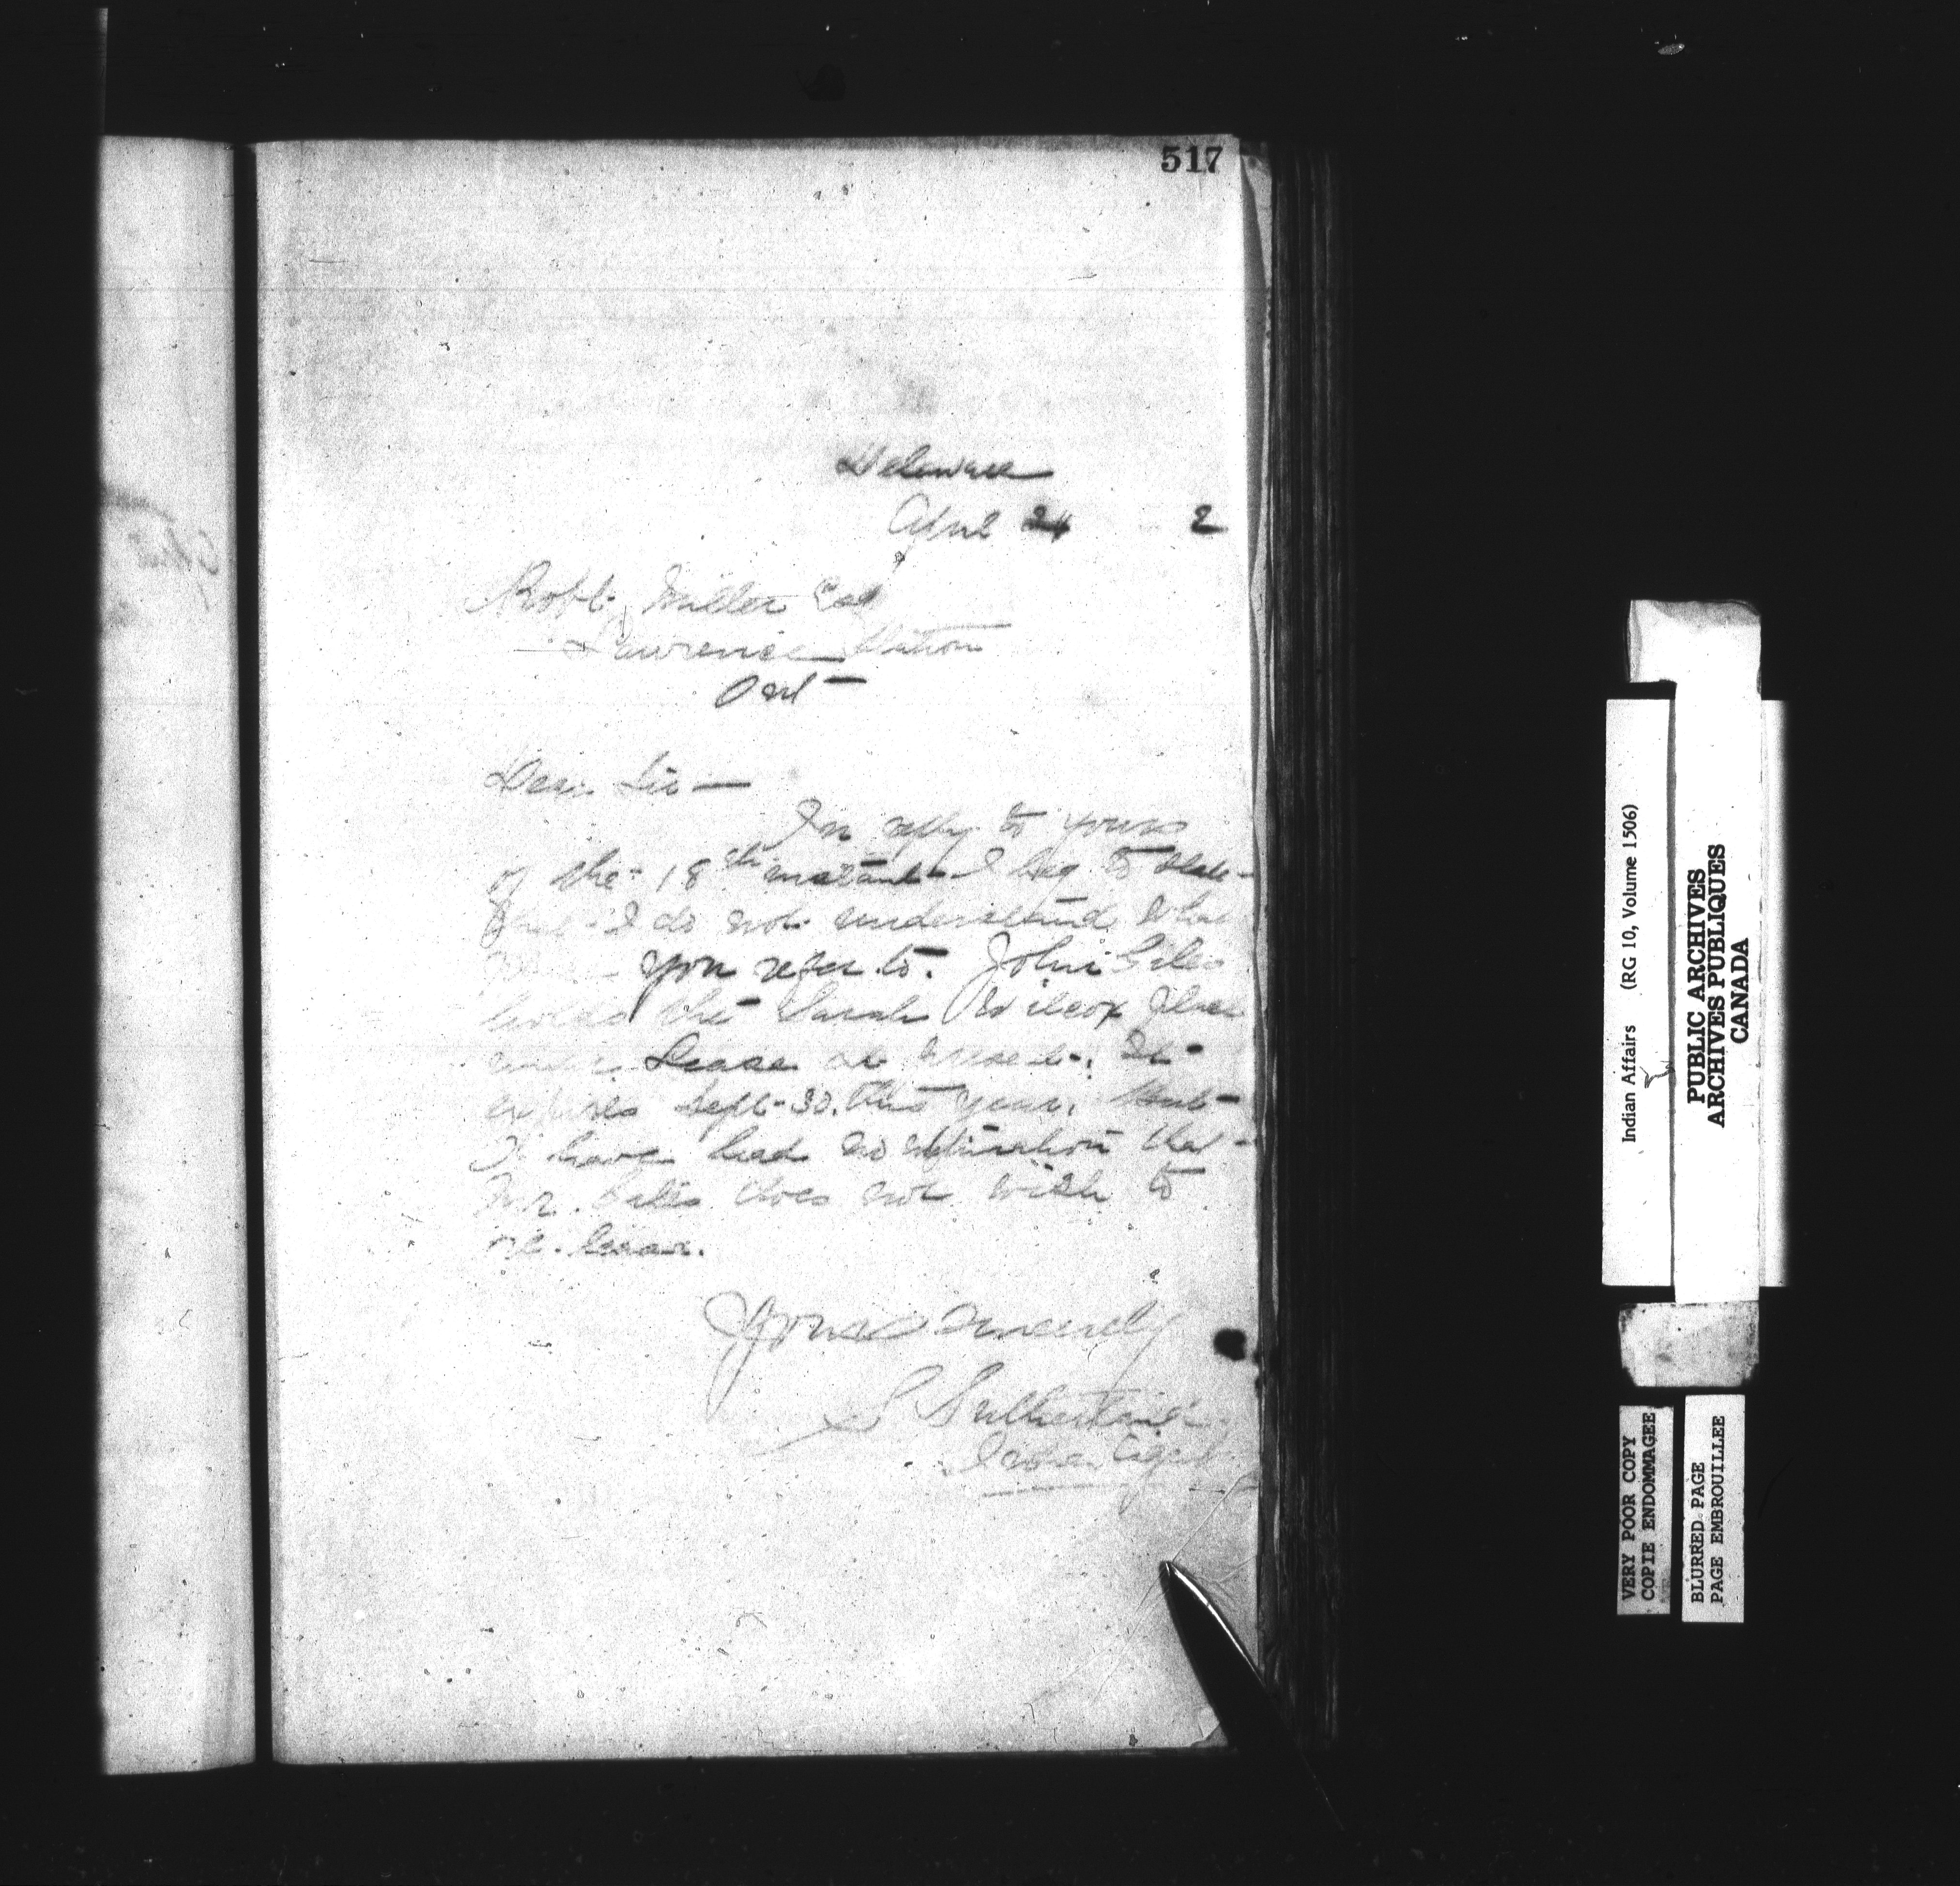 517
Delaware
April 24 2
Robt. Miller Esq
Lawrence Station
Ont
Dear Sir —
In reply to yours
of the 18th instant I beg to state
that I do not understand what
you refer to. John Giles
holds the Sarah Wilcox place
under Lease at present. It
expires Sept 30. this year. But
I have had no intimation that
Mr. Giles does not wish to
re-lease.
Yours sincerely
S Sutherland
Indian Agent
Indian Affairs (RG 10, Volume 1506)
PUBLIC ARCHIVES
ARCHIVES PUBLIQUES
CANADA
VERY POOR COPY
COPIE ENDOMMAGEE
BLURRED PAGE
PAGE EMBROUILLEE